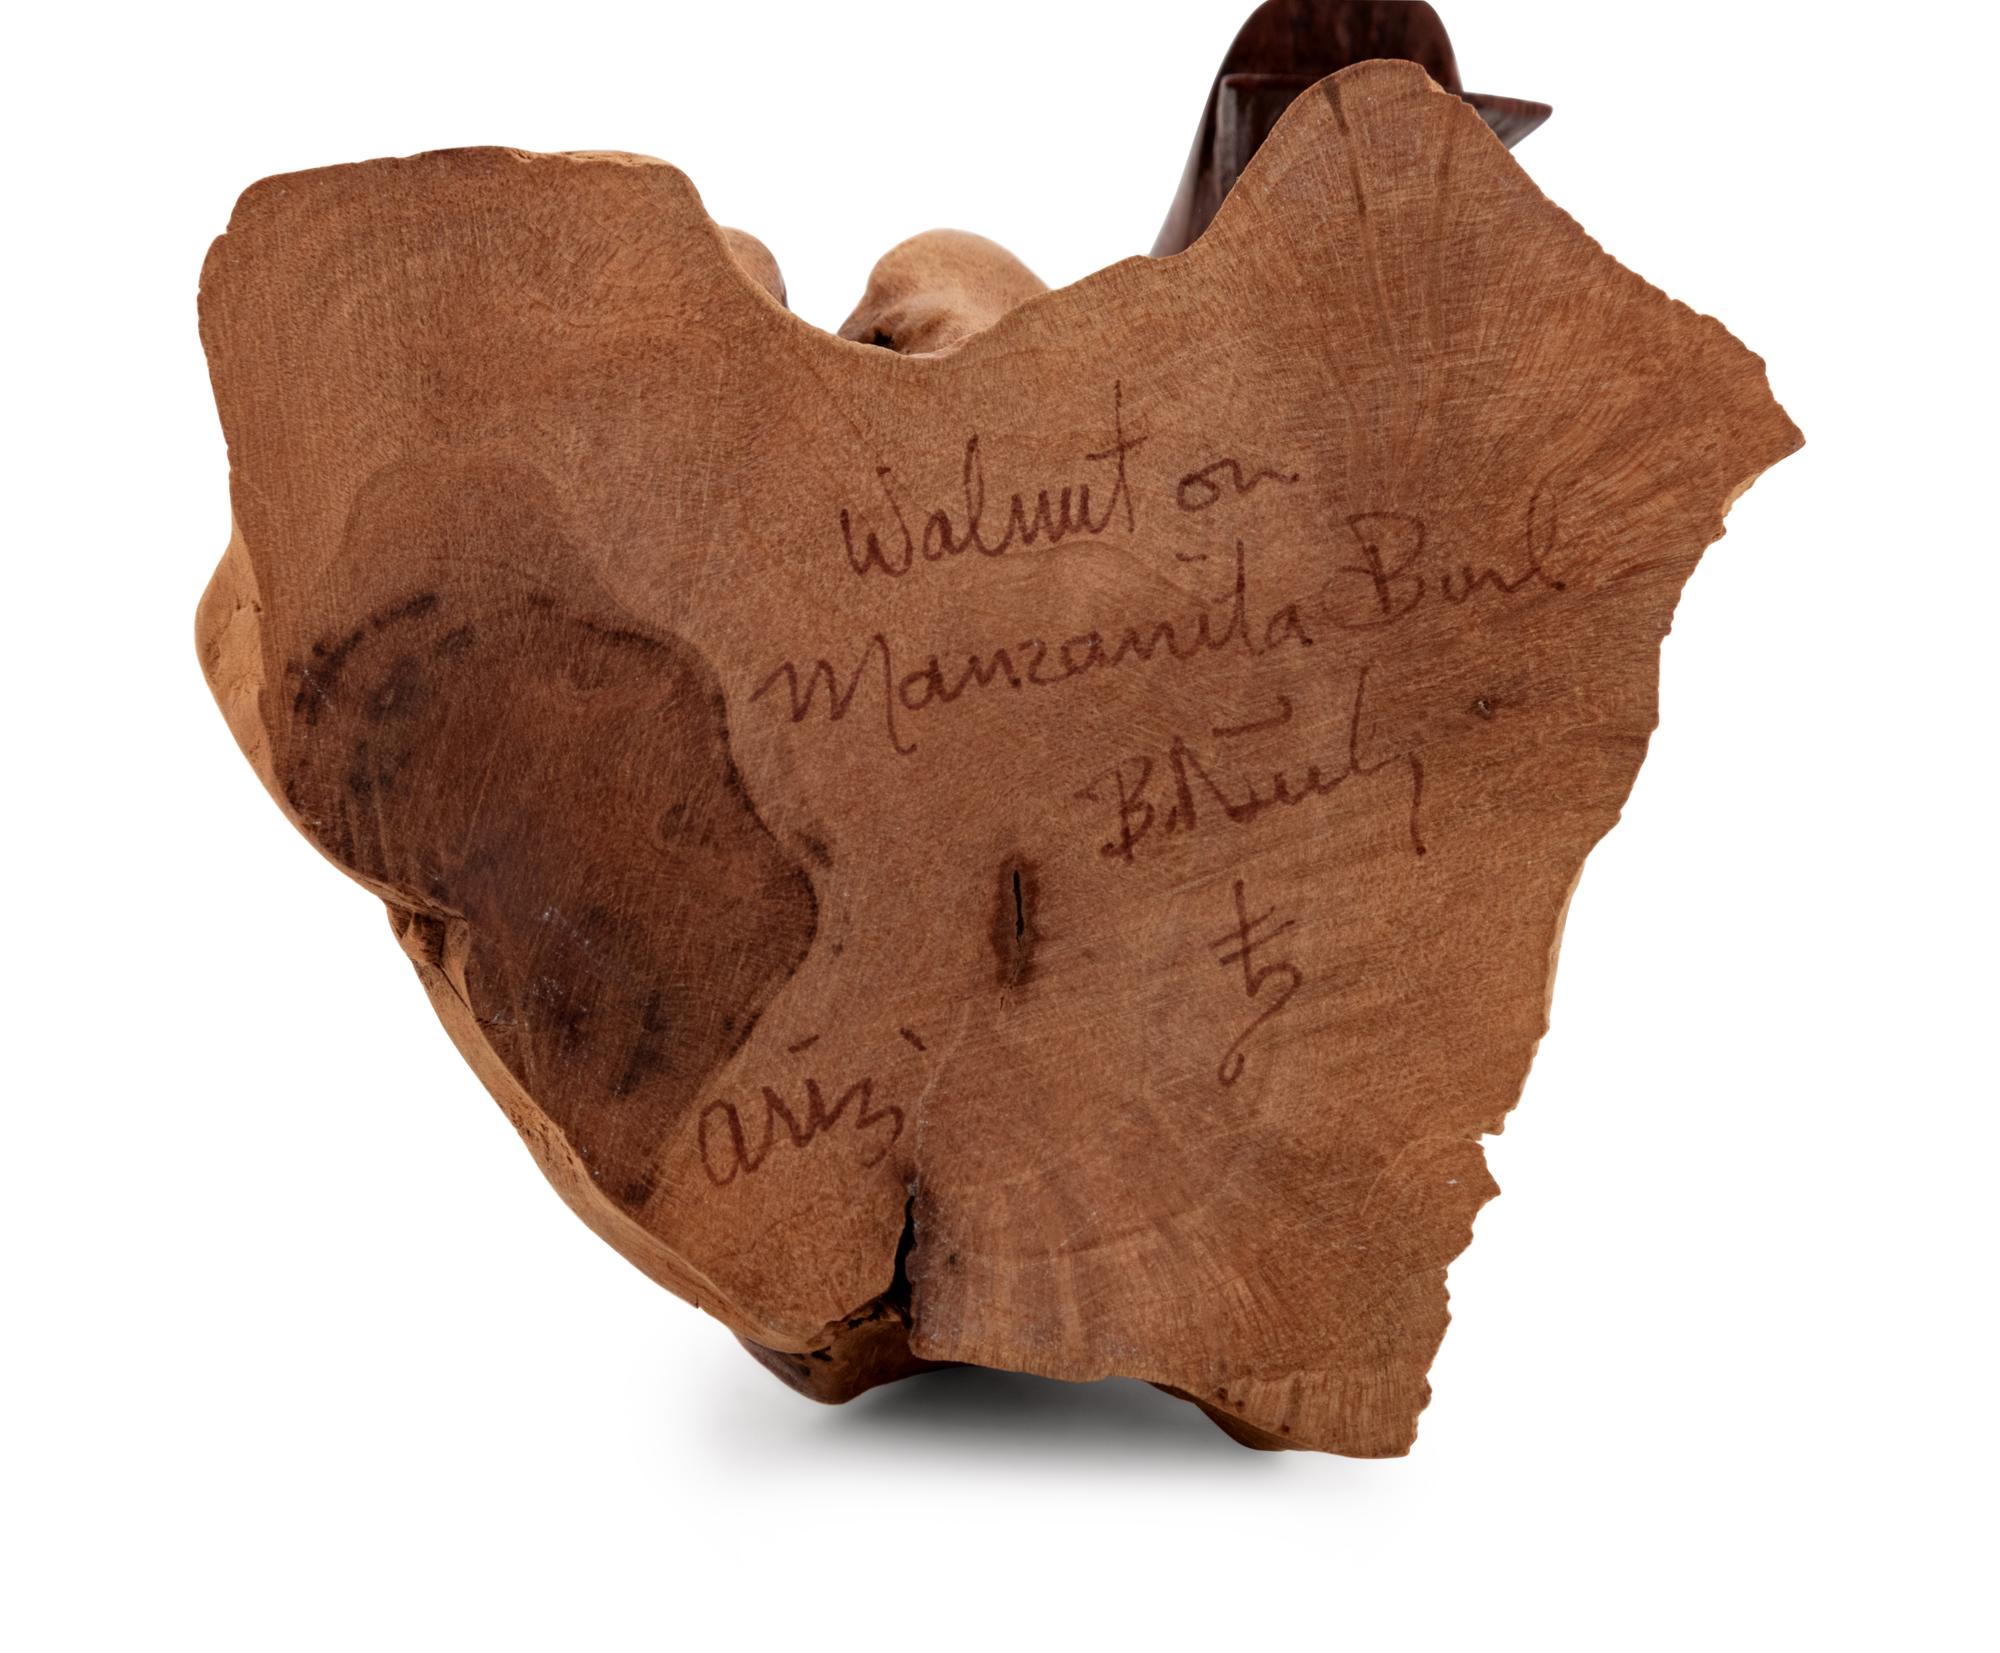 Walnut on
Manzanita Burl
ariz